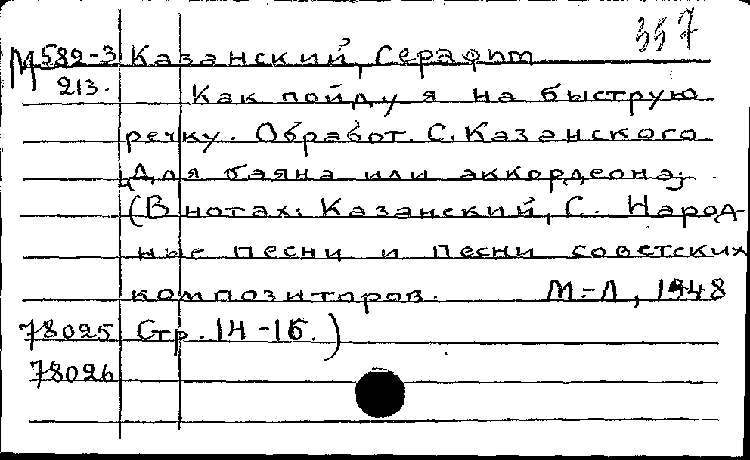 357
М 582-3 Казанский, Серафим
213. Как пойду я на быструю
речку. Обработ. С. Казанского
[Для баяна или аккордеона]
(В нотах: Казанский, С. Народ-
ные песни и песни советских
композиторов. М.-Л, 1948
78025 Стр. 14-15.)
78026